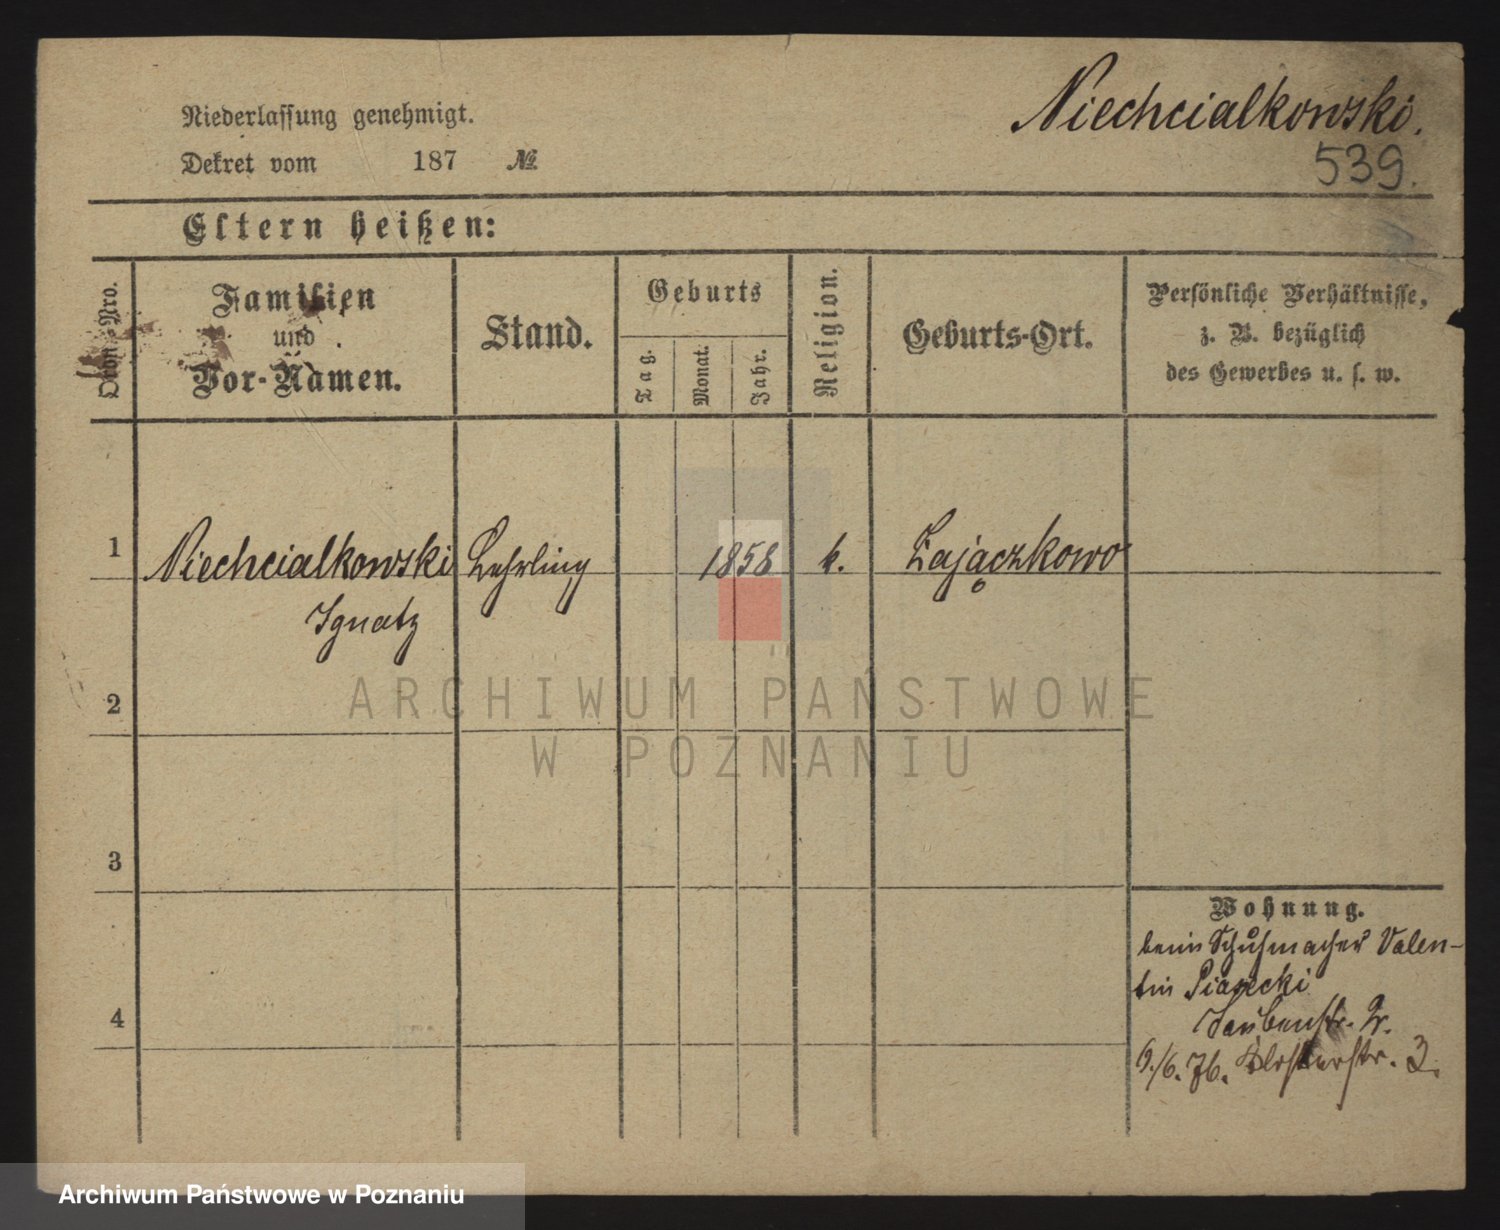 Niechcialkowski.
539.
Niederlassung genehmigt.
Dekret vom 187 №
Eltern heißen:
Ordn.-Nro.
Familien
und
Vor-Namen.
Stand.
Geburts
Tag.
Monat.
Jahr.
Religion.
Geburts-Ort.
Persönliche Verhältnisse,
z. B. bezüglich
des Gewerbes u. s. w.
1
Niechcialkowski
Ignatz
Lehrling
1858
k.
Zajączkowo
2
3
4
Wohnung.
beim Schuhmacher Valen-
tin Piasecki
Taubenstr. 2.
9./6. 76. Klosterstr. 3.
ARCHIWUM PAŃSTWOWE
W POZNANIU
Archiwum Państwowe w Poznaniu